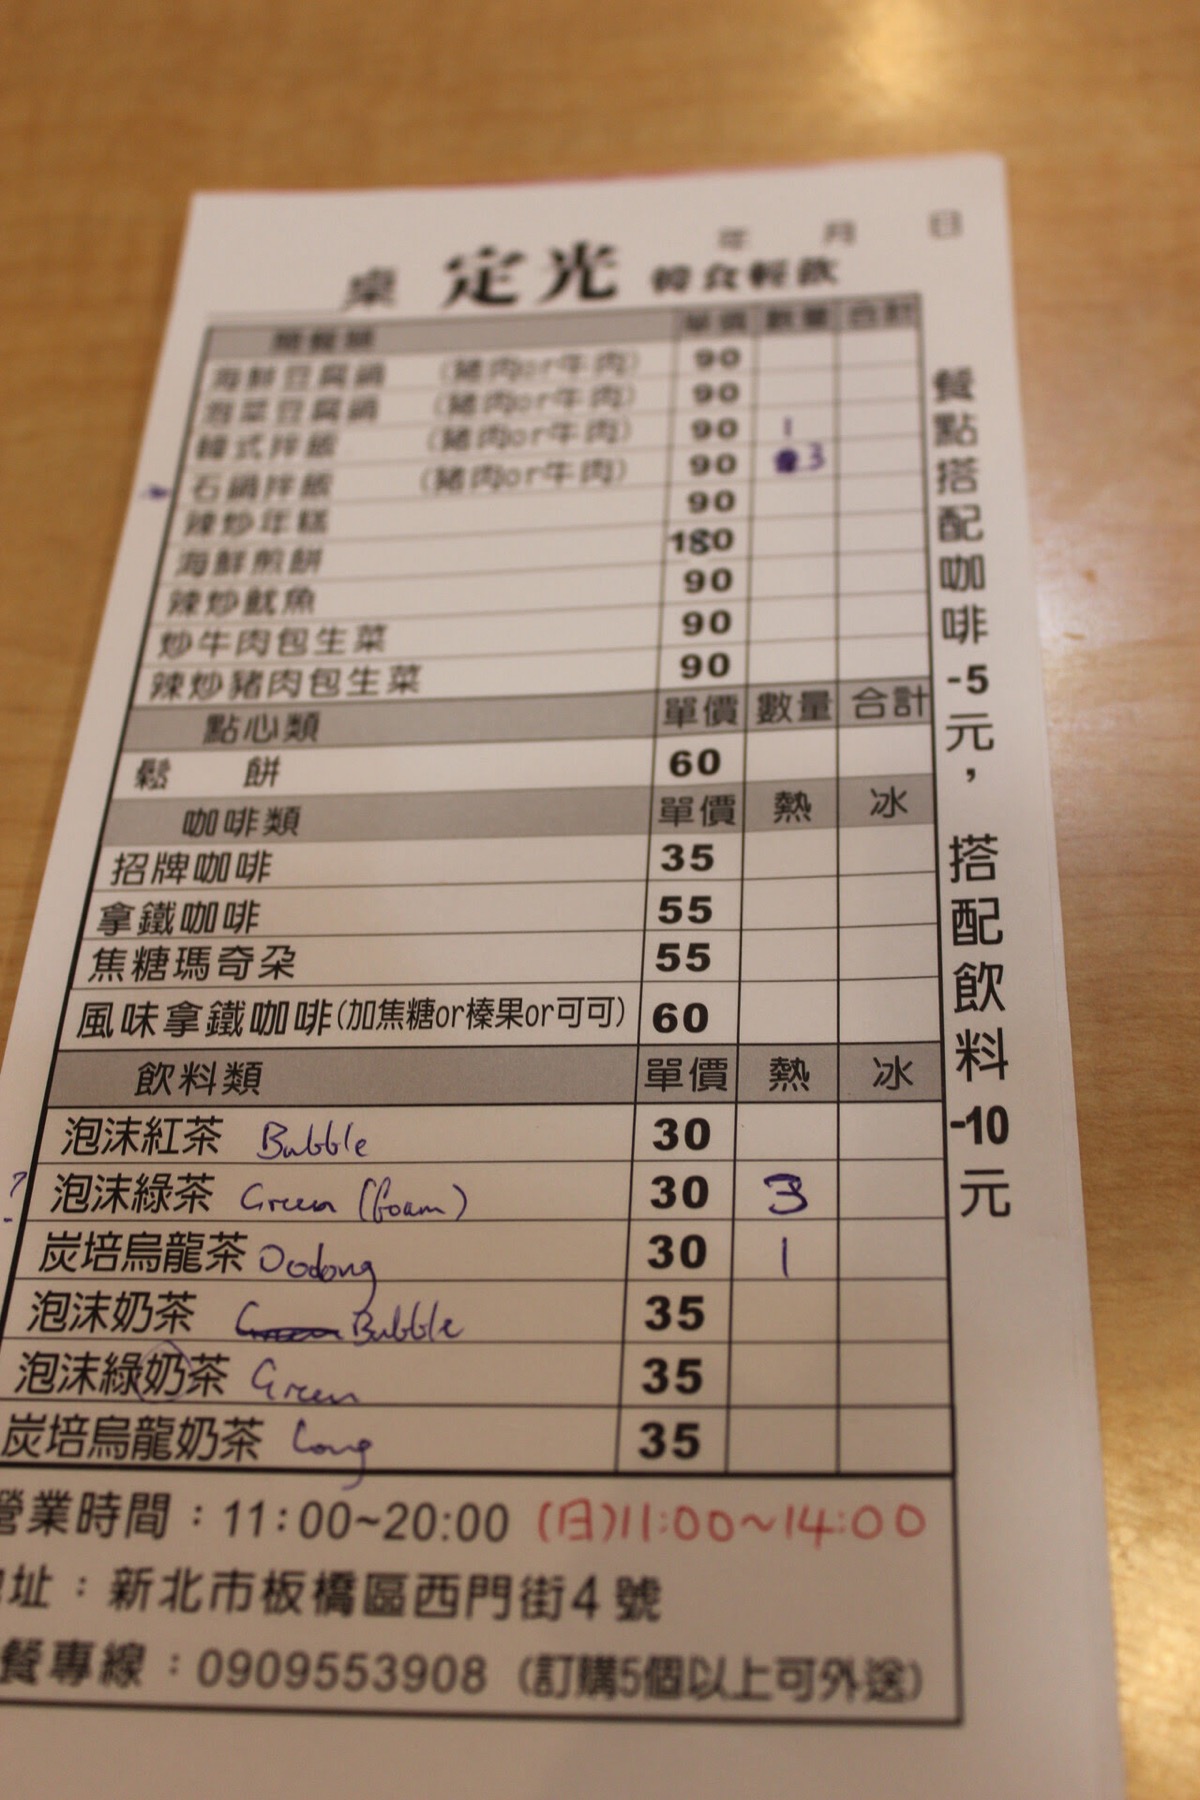 年 月 日
桌 定光 韓食輕飲
單價 數量 合計
海鮮豆腐鍋 (豬肉or牛肉) 90
泡菜豆腐鍋 (豬肉or牛肉) 90
韓式拌飯 (豬肉or牛肉) 90 1
石鍋拌飯 (豬肉or牛肉) 90 3
辣炒年糕 90
海鮮煎餅 180
辣炒魷魚 90
炒牛肉包生菜 90
辣炒豬肉包生菜 90
點心類 單價 數量 合計
鬆 餅 60
咖啡類 單價 熱 冰
招牌咖啡 35
拿鐵咖啡 55
焦糖瑪奇朵 55
風味拿鐵咖啡(加焦糖or榛果or可可) 60
飲料類 單價 熱 冰
泡沫紅茶 Bubble 30
? 泡沫綠茶 Green (foam) 30 3
炭培烏龍茶 Oolong 30 1
泡沫奶茶 Bubble 35
泡沫綠奶茶 Green 35
炭培烏龍奶茶 Long 35
營業時間：11:00~20:00 (日)11:00~14:00
址：新北市板橋區西門街4號
餐專線：0909553908 (訂購5個以上可外送)
餐點搭配咖啡-5元，搭配飲料-10元